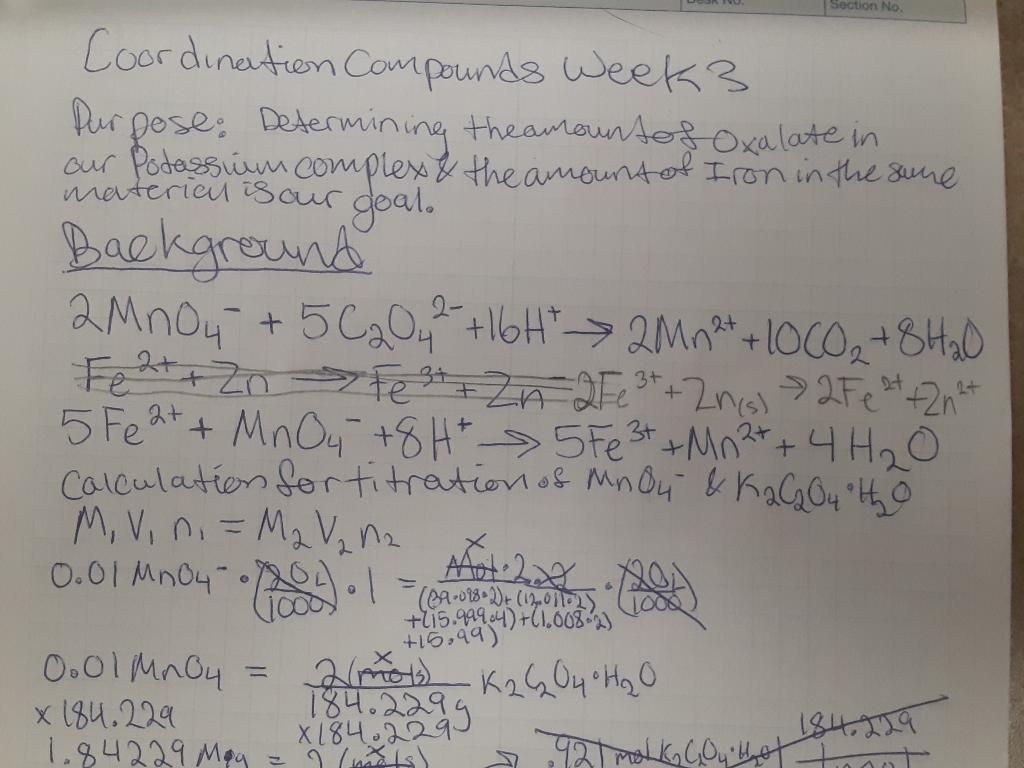 Desk No.
Section No.
Coordination Compounds Week 3
Purpose: Determining the amount of Oxalate in
our Potassium complex & the amount of Iron in the same
material is our goal.
Background
2MnO₄⁻ + 5C₂O₄²⁻ + 16H⁺ → 2Mn²⁺ + 10CO₂ + 8H₂O
Fe²⁺ + Zn → Fe³⁺ + Zn 2Fe³⁺ + Zn(s) → 2Fe²⁺ + Zn²⁺
5Fe²⁺ + MnO₄⁻ + 8H⁺ → 5Fe³⁺ + Mn²⁺ + 4H₂O
Calculation for titration of MnO₄⁻ & K₂C₂O₄·H₂O
M₁V₁n₁ = M₂V₂n₂
x
0.01 MnO₄⁻ · (20/1000) · 1 = Mol · 2 · (20/1000)
(39.098·2)+(12.011·2)
+(15.999·4)+(1.008·2)
+15.99)
0.01 MnO₄ = 2(x mols)/184.229g K₂C₂O₄·H₂O
x184.229 x184.229
1.84229 = 2(x mols) → .921 mol K₂C₂O₄·H₂O 184.229